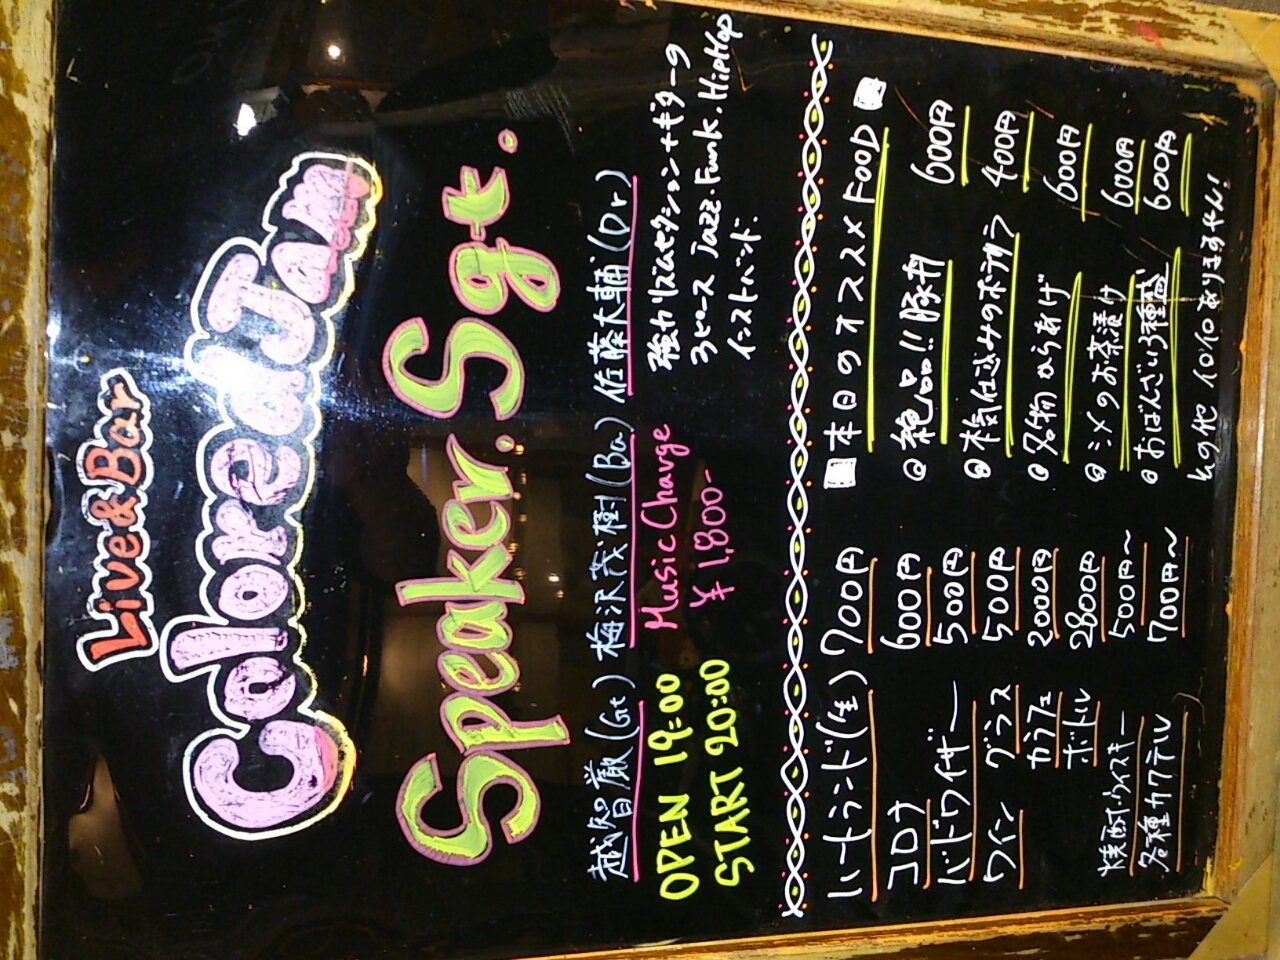 Live&Bar
Colored Jam
Speaker. Sgt.
越智巌(Gt) 梅沢茂樹(Ba) 佐藤大輔(Dr)
OPEN 19:00
START 20:00
Music Charge
¥1,800-
強力リズムセクション+ギターの
3ピース Jazz.Funk.HipHop
インストバンド.
ハートランド(生) 700円
コロナ 600円
バドワイザー 500円
ワイン グラス 500円
カラフェ 2000円
ボトル 2800円
焼酎・ウイスキー 500円〜
各種カクテル 700円〜
本日のオススメ FOOD
絶品!!豚丼 600円
本気仕込みのポテサラ 400円
名物からあげ 600円
シメのお茶漬け 600円
おばんざい3種盛 600円
その他イロイロありますヤん!